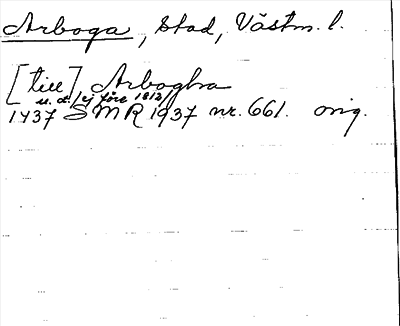 Arboga, Stad, Västm. l.
[till] Arbogha
u. d. /ej före 1812/
1437 SMR 1937 nr. 661. orig.